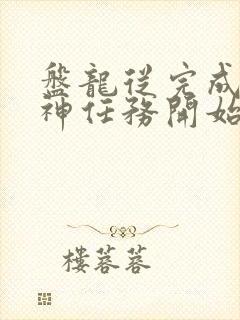 盤龍從完成
神任務開始
樓蓉蓉